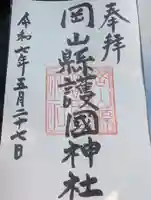 奉拝
岡山縣護國神社
令和七年五月二十七日